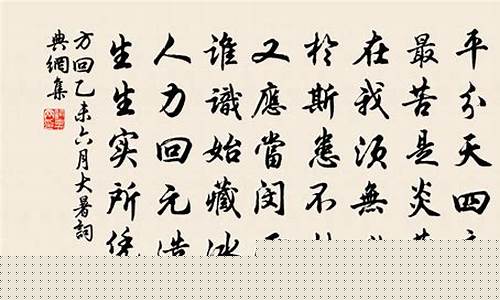 平分天四
最苦是炎
在我须無
於斯患不
又應當閔
誰識始藏冰
人力回元造
生生实所凭
方回乙未六月大暑詞
典網集